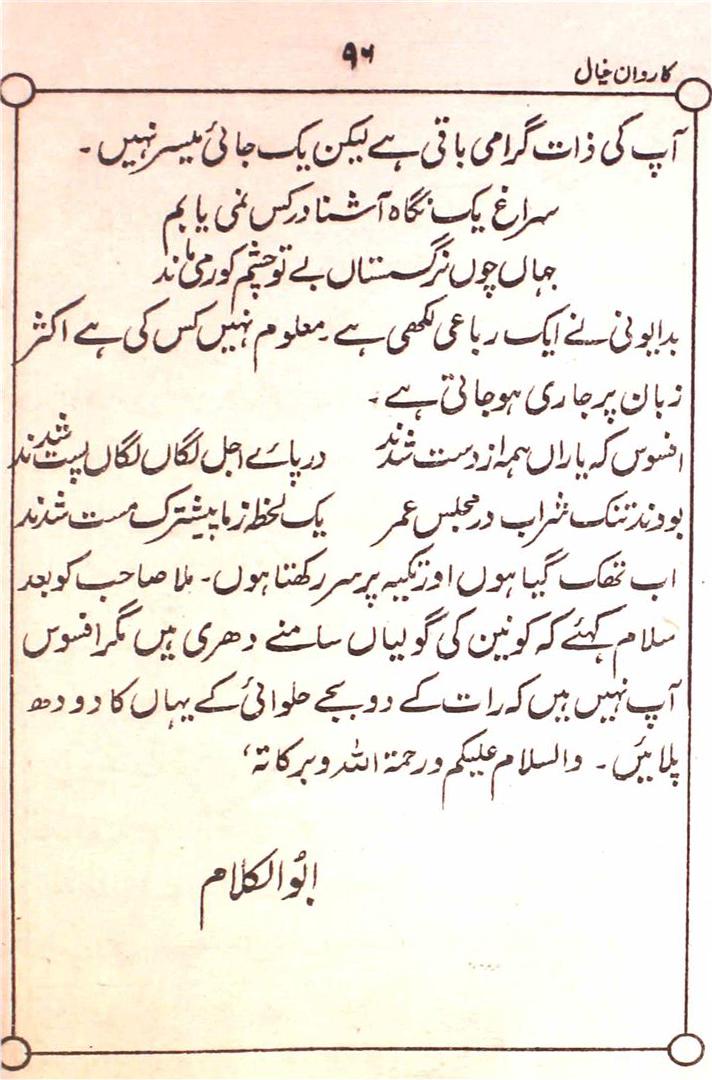 کاروان خیال
۹۶
آپ کی ذات گرامی باقی ہے لیکن یک جائی میسر نہیں ۔
سراغ یک نگاہ آشنا در کس نمی یابم
جہاں چوں نرگستاں بے تو چشم کور می ماند
بدایونی نے ایک رباعی لکھی ہے ۔ معلوم نہیں کس کی ہے اکثر
زبان پر جاری ہوجاتی ہے ۔
افسوس کہ یاراں ہمہ از دست شدند در پائے اجل لگاں لگاں پست شدند
بودند تنک شراب در مجلس عمر یک لحظہ زما پیشترک مست شدند
اب تھک گیا ہوں اور تکیہ پر سر رکھتا ہوں ۔ ملا صاحب کو بعد
سلام کہئے کہ کونین کی گولیاں سامنے دھری ہیں مگر افسوس
آپ نہیں ہیں کہ رات کے دو بجے حلوائی کے یہاں کا دودھ
پلائیں ۔ والسلام علیکم ورحمۃ اللہ وبرکاتہ ‘
ابُو الکلام